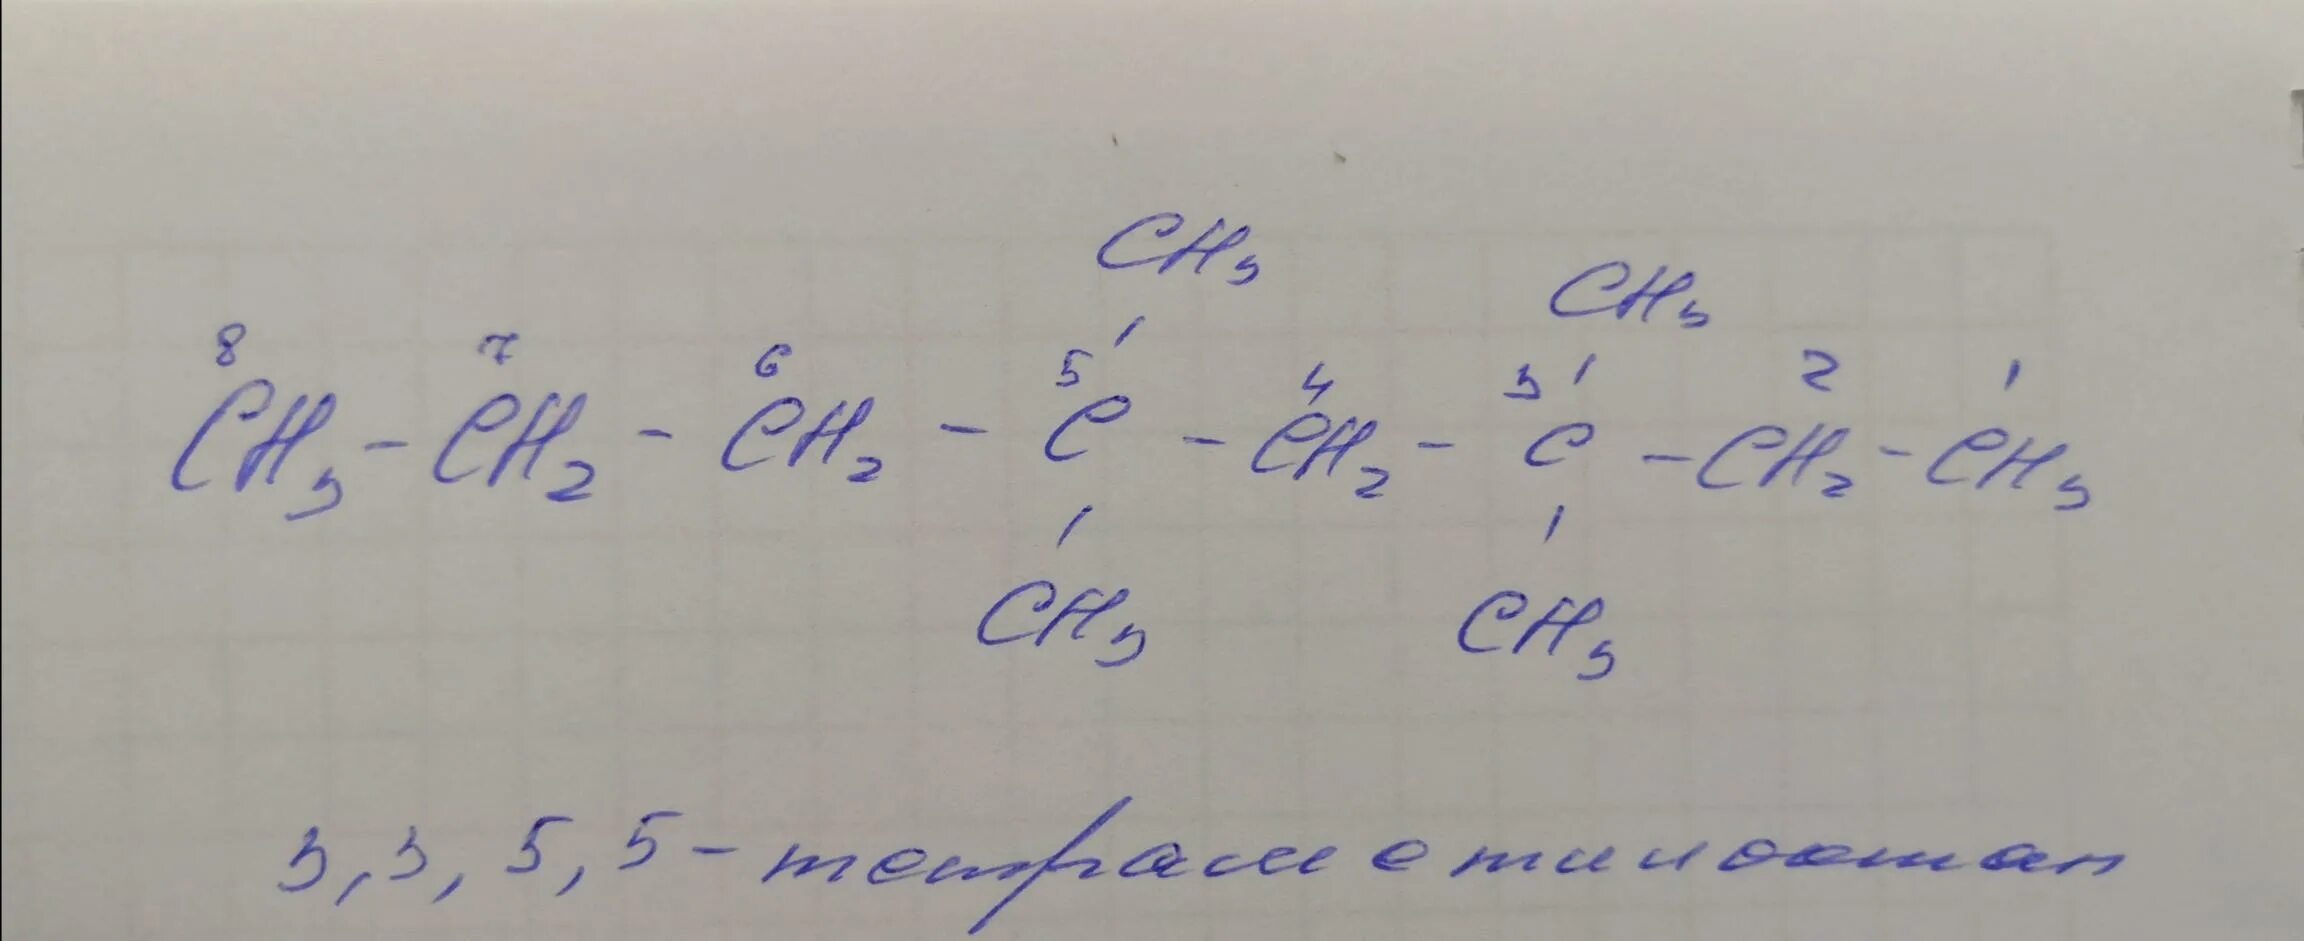 CH3
CH3
8 7 6 5 4 3 2 1
CH3 - CH2 - CH2 - C - CH2 - C - CH2 - CH3
CH3 CH3
3,3,5,5-тетраметилоктан